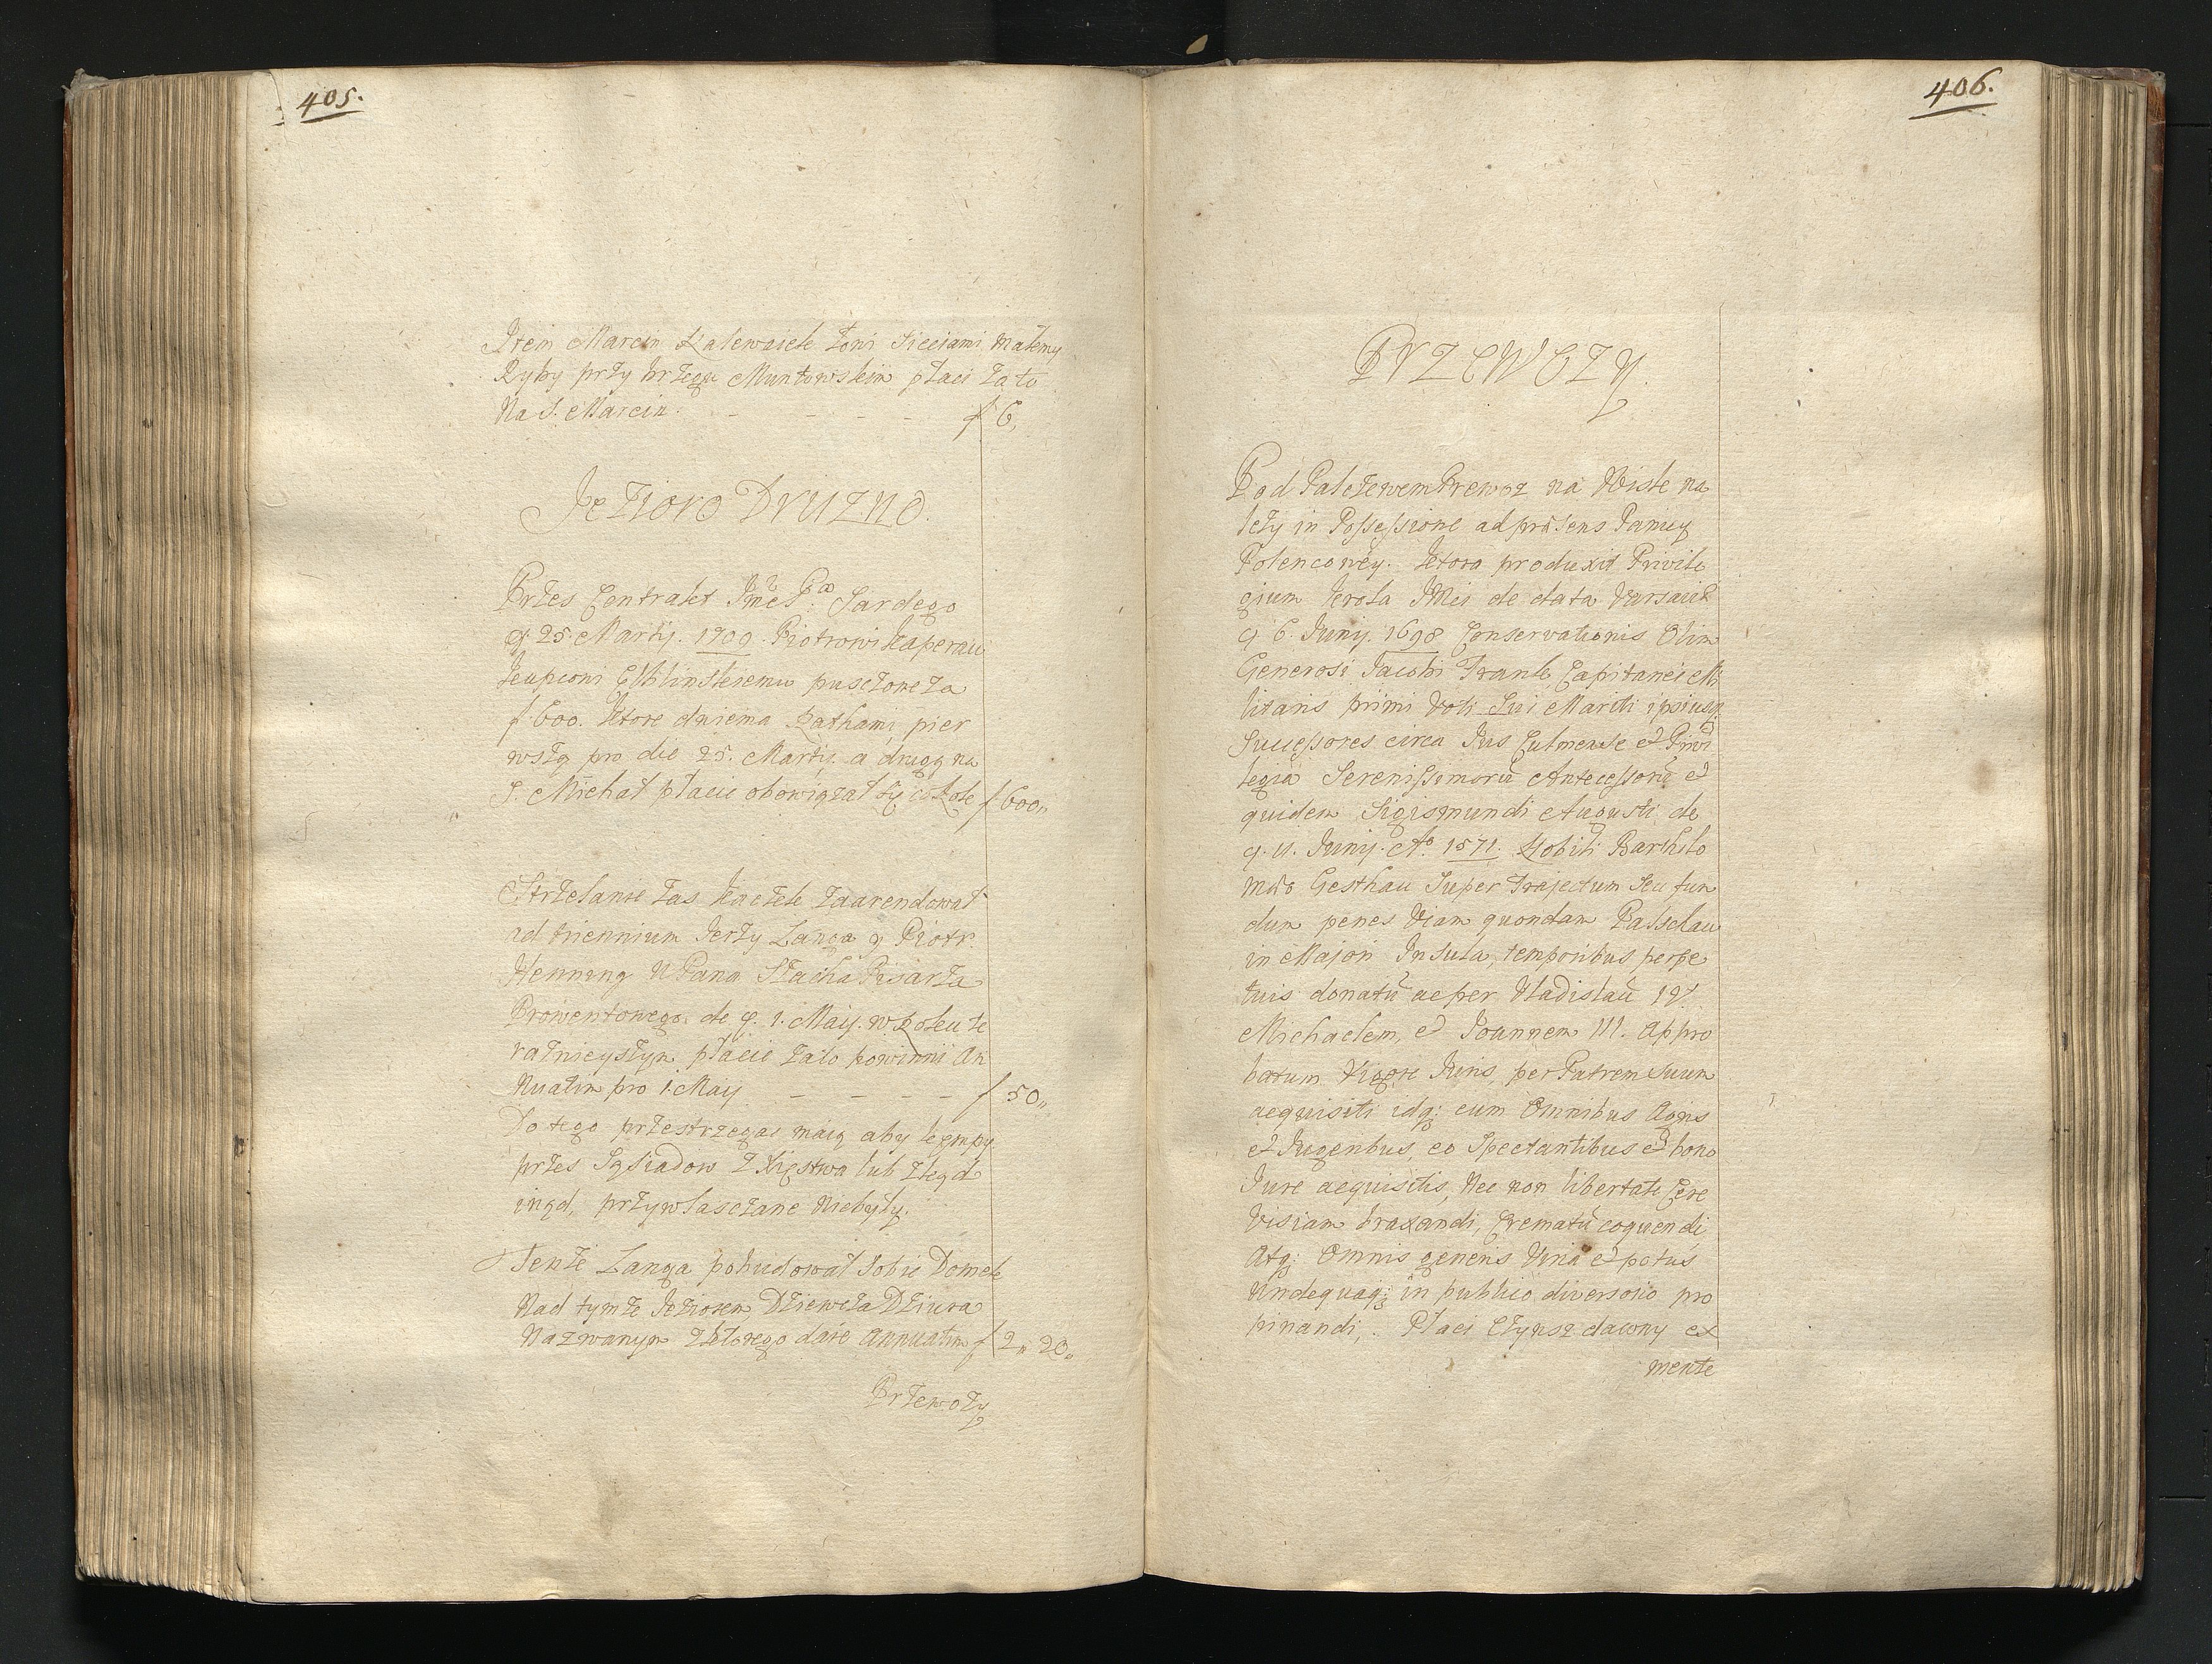 405.
Item Marcin Kalewaick łowi Sieciami małemy
Ryby przy brzegu Muntowskim płaci za to
Na S. Marcin. - - - - f 6,
Jezioro Druzno.
Przes Contrakt Jmci Pa Sardego
d. 25. Martij. 1709. Piotrowi Kaperau
kupcowi Elblinskiemu pusczone za
f 600. ktore dwiema Rathami, pier
wszą pro die 25. Martij. a drugą na
S. Michał płacic obowiązał się co Rok f 600,,
Strzelanie zas kaczek zaarendował
ad triennium Jerzy Langa y Piotr.
Henning u Pana Szacha Pisarza
Prowentowego. de d. 1. Maij. w Roku te
raznieyszym płacic za to powinni An
nuatim pro 1. Maij - - - - f 50,,
Do tego przestrzegac maią aby kępmpy
przes Sąsiadow z Xięstwa lub zkąd
inąd, przywłasczane niebyły.
Tenże Langa pobudował sobie Domek
Nad tymze Jeziorem, Dziewcza Dziura
Nazwanym z ktorego daie annuatim f 2,, 20,,
Przewozy
406.
PRZEWOZY.
Pod Palczewem Prewoz na Wisle na
leży in Possessione ad præsens Paniey
Polencowey. ktora produxit Privile
gium Krola JMci de data Varsaviæ
d. 6. Junij. 1698 Conservationis Olim
Generosi Jacobi Frank, Capitanei Mi
litaris primi Voti Sui Mariti ipsiusq
Successores circa Jus Culmense et Privi
legia Serenissimorũ Antecessorũ et
quidem Sigismundi Augusti de
d. 11. Junij. Ao 1571. Nobili Bartholo
mæo Gesthau Super Trajectum seu fun
dum penes Viam quondam Palschau
in Majori Insula, temporibus perpe
tuis donatũ ac per Vladislaũ IV.
Michaelem, et Joannem III. appro
batum Vigore Juris, per Patrem Suum
acquisiti idq; cum Omnibus Agris
et Jugeribus, eo Spectantibus et bono
Jure acquisitis, Nec non libertate Cere
visiam braxandi, Crematũ coquendi
Atq; Omnis generis Vina et potus
Undequaq; in publico diversoio pro
pinandi, . Płaci Czynsz dawny ex
mente